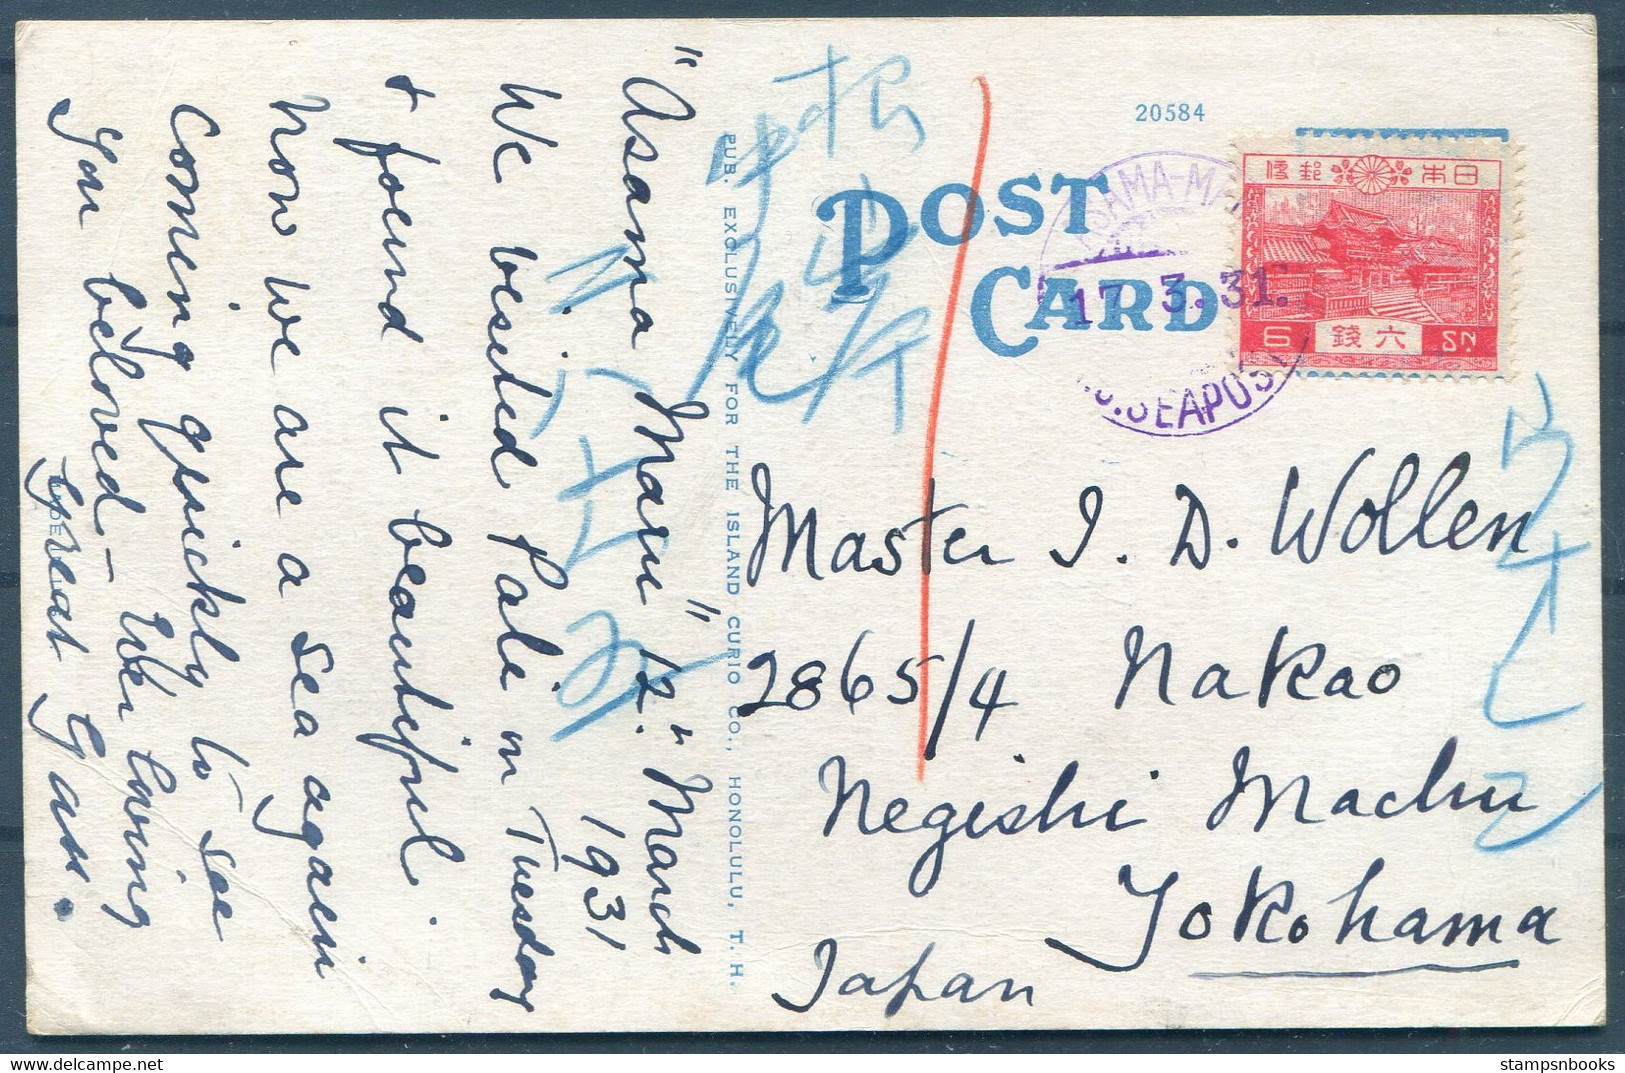 "Asama Maru" 12" March
1931
We besited Pale on Tuesday
& found it beautiful.
Now we are a sea again
coming quickly to see
you beloved - Wer loving
Great Gran.
PUB. EXCLUSIVELY FOR THE ISLAND CURIO CO., HONOLULU, T. H.
POST
CARD
20584
日本郵便
6 六錢 SN
17. 3. 31.
SEAPOST
Master I. D. Wollen
2865/4 Nakao
Negishi Machu
Yokohama
Japan
stampsnbooks